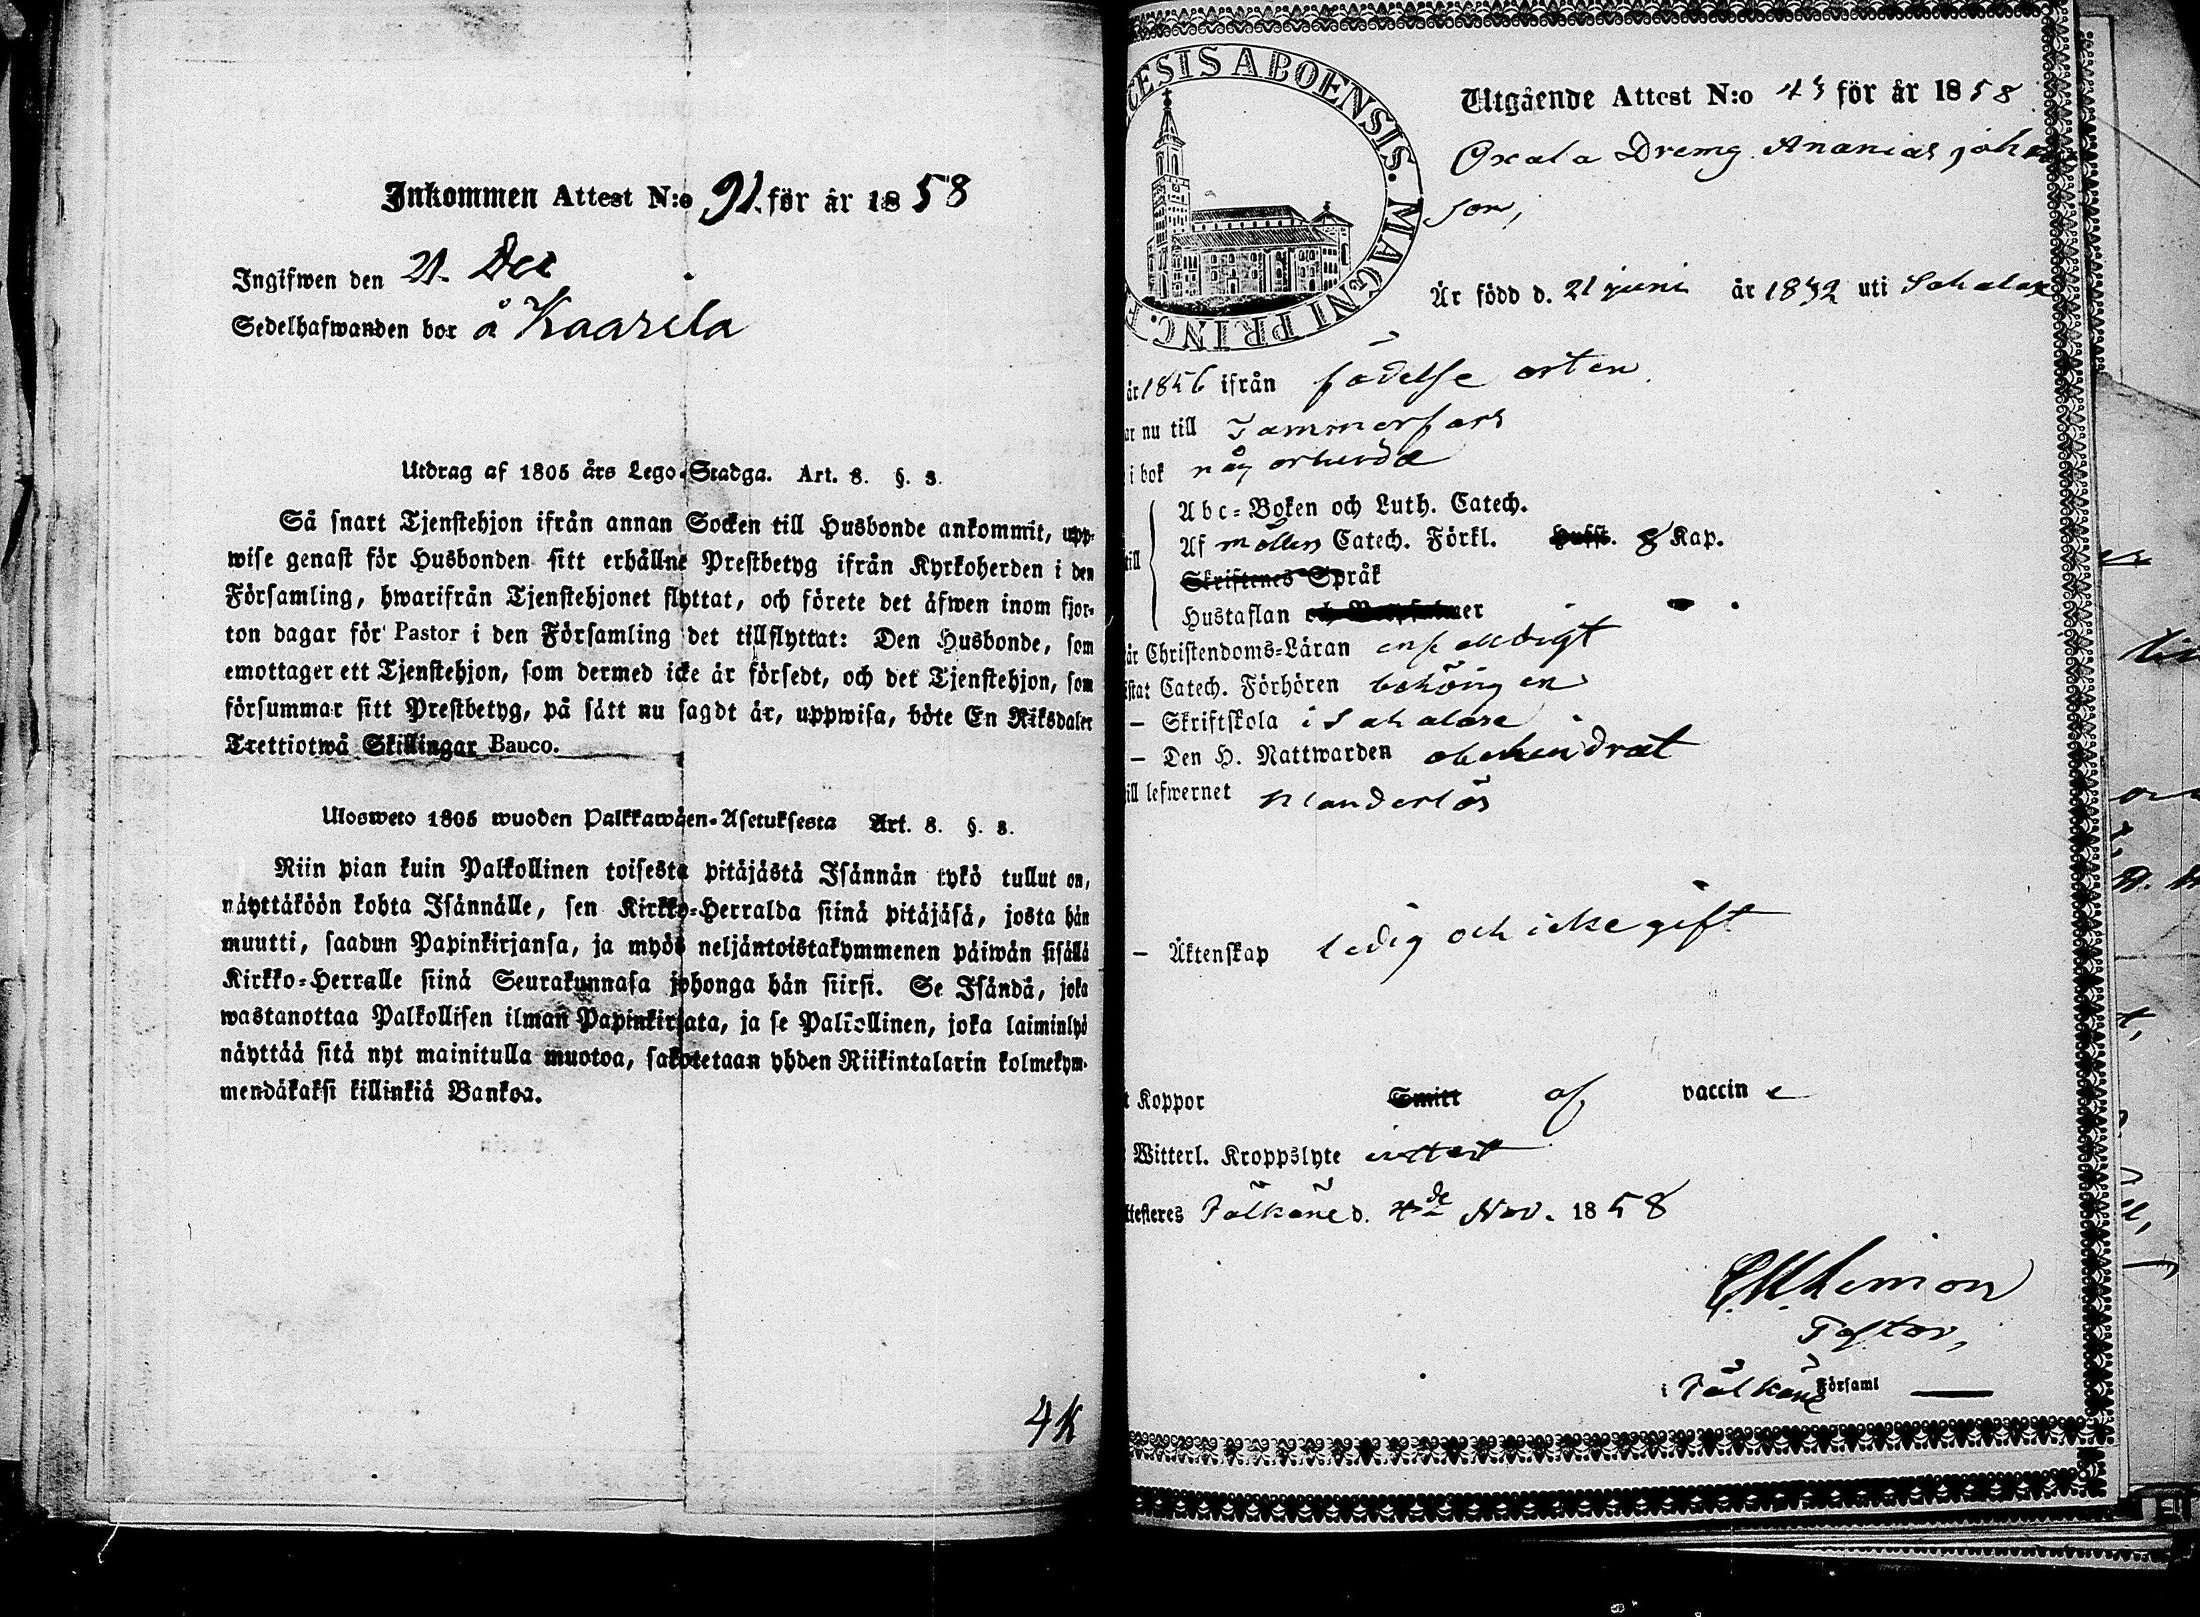 Inkommen Attest N:o 91. för år 1858
Ingifwen den 21. Dec
Sedelhafwanden bor å Kaarela
Utdrag af 1805 års Lego-Stadga. Art. 8. §. 3.
Så snart Tjenstehjon ifrån annan Socken till Husbonde ankommit, upp-
wise genast för Husbonden sitt erhållne Prestbetyg ifrån Kyrkoherden i den
Församling, hwarifrån Tjenstehjonet flyttat, och förete det äfwen inom fjor-
ton dagar för Pastor i den Församling det tillflyttat: Den Husbonde, som
emottager ett Tjenstehjon, som dermed icke är försedt, och det Tjenstehjon, som
försummar sitt Prestbetyg, på sätt nu sagdt är, uppwisa, böte En Riksdaler
Trettiotwå Skillingar Banco.
Ulosweto 1805 wuoden Palkkawäen-Asetuksesta Art. 8. §. 3.
Niin pian kuin Palkollinen toisesta pitäjästä Isännän tykö tullut on,
näyttäköön kohta Isännälle, sen Kirkko-Herralda siinä pitäjäsä, josta hän
muutti, saadun Papinkirjansa, ja myös neljäntoistakymmenen päiwän sisällä
Kirkko-Herralle siinä Seurakunnasa johonga hän siirsi. Se Isändä, joka
wastanottaa Palkollisen ilman Papinkirjata, ja se Palkollinen, joka laiminlyö
näyttää sitä nyt mainitulla muotoa, sakotetaan yhden Riikintalarin kolmekym-
mendäkaksi killinkiä Bankoa.
4K
ESIS ABOENSIS. MAGNI PRINC. F
Utgående Attest N:o 43 för år 1858
Oxala Dreng Ananias Johans
son,
Är född d. 21 juni år 1832 uti Sahalax
år 1856 ifrån födelse orten
nu till Tammerfors
i bok någorlunda
till
Abc-Boken och Luth. Catech.
Af möllers Catech. Förkl. Hufst. 8 Kap.
Skriftenes Språk
Hustaflan och
år Christendoms-Läran enfalldigt
istat Catech. Förhören behörigen
– Skriftskola i Sahalax
– Den H. Nattwarden obehindrat
till lefwernet klanderlös
– Äktenskap ledig och icke gift
t Koppor Smitt af vaccine
Witterl. Kroppslyte intet
ttesteres Pälkäne d. 4de Nov. 1858
Pastor,
i Pälkäne Församl